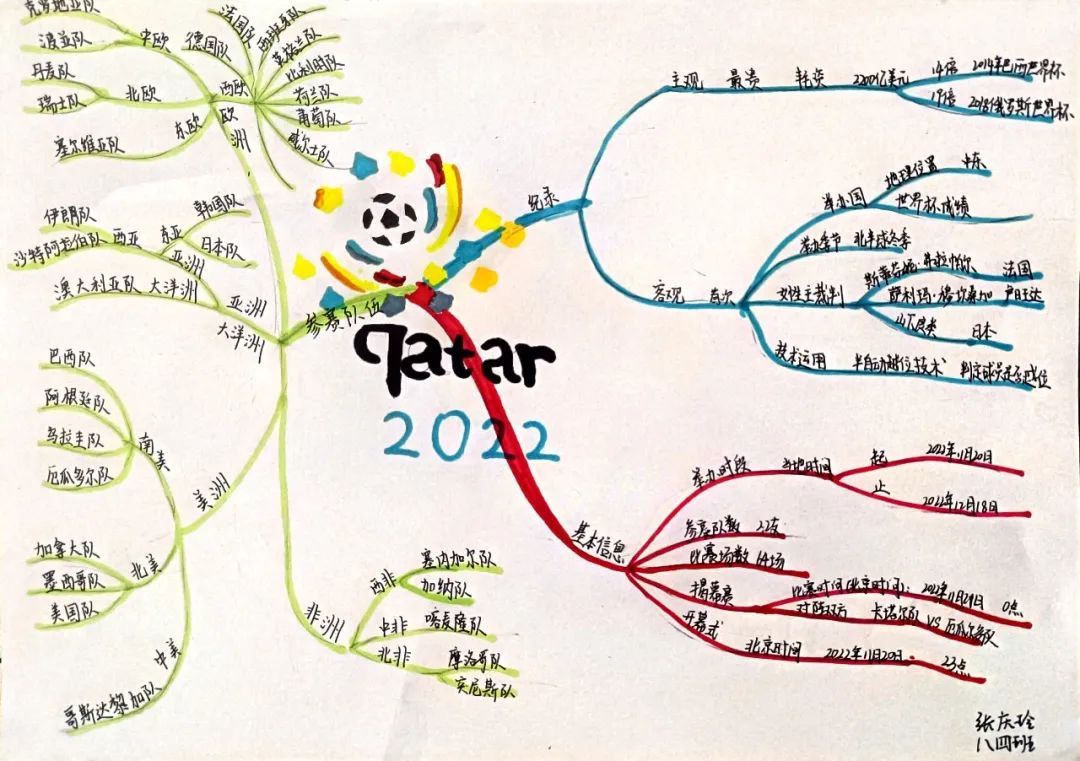 Qatar
2022
参赛队伍
欧洲
中欧
克罗地亚队
波兰队
北欧
丹麦队
瑞士队
东欧
塞尔维亚队
西欧
德国队
法国队
西班牙队
英格兰队
比利时队
荷兰队
葡萄队
威尔士队
亚洲
大洋洲
亚洲
西亚
伊朗队
沙特阿拉伯队
东亚
韩国队
日本队
大洋洲
澳大利亚队
美洲
南美
巴西队
阿根廷队
乌拉圭队
厄瓜多尔队
北美
加拿大队
墨西哥队
美国队
中美
哥斯达黎加队
非洲
西非
塞内加尔队
加纳队
中非
喀麦隆队
北非
摩洛哥队
突尼斯队
纪录
主观 最贵 耗资 2200亿美元
14倍 2014年巴西世界杯
19倍 2018俄罗斯世界杯
宏观 首次
举办国
地理位置 中东
世界杯成绩
举办季节 北半球冬季
女性主裁判
法国
萨利玛·穆坎桑加 卢旺达
山下良美 日本
技术运用 半自动越位技术 判定球员是否越位
基本信息
举办时段 当地时间
起 2022年11月20日
止 2022年12月18日
参赛队数
比赛场数 64场
揭幕赛
比赛时间(北京时间): 0点
对阵双方 卡塔尔队 VS 厄瓜多尔队
开幕式
北京时间 2022年11月20日 23点
张庆玲
八四班